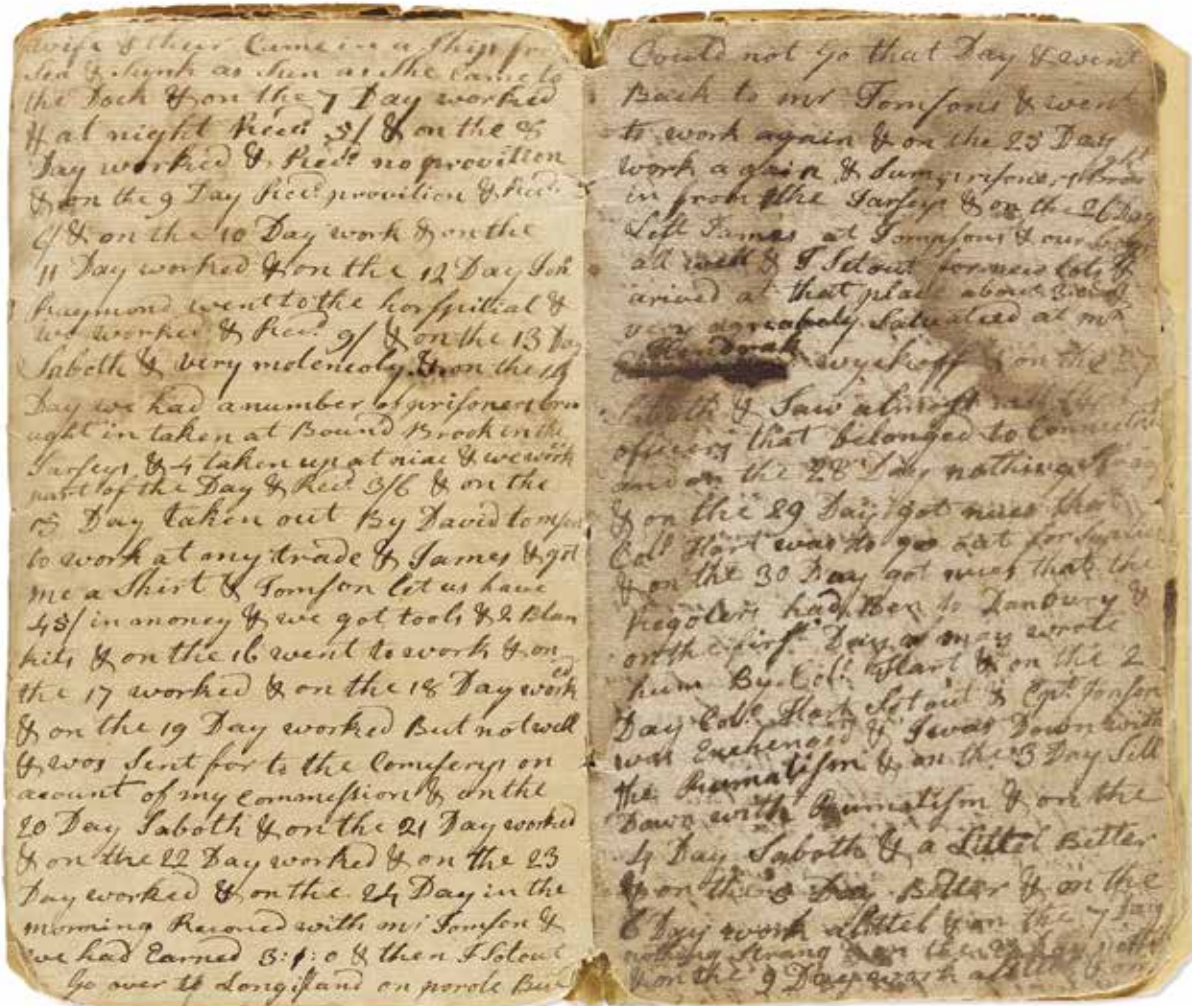 wife & their Came in a Ship from
Sea & Sunk as Sun as She Came to
the Dock & on the 7 Day worked
& at night Recd. 5/ & on the 8
Day worked & Recd. no provition
& on the 9 Day Recd. provition & Recd.
6/ & on the 10 Day work & on the
11 Day worked & on the 12 Day Jon
Raymond went to the horspitial &
we worked & Recd. 9/ & on the 13 Day
Saboth & very molencoly & on the 14
Day we had a number of prisoners bro
ught in taken at Bound Brook in the
Jarseys & 4 taken up at niac & we work
part of the Day & Recd. 3/6 & on the
15 Day taken out By David tomson
to work at my trade & James & got
me a Shirt & Tomson let us have
45/ in money & we got tools & 2 Blan
kits & on the 16 went to work & on
the 17 worked & on the 18 Day worked
& on the 19 Day worked But not well
& was Sent for to the Comeserys on
account of my Commission & on the
20 Day Saboth & on the 21 Day worked
& on the 22 Day worked & on the 23
Day worked & on the 24 Day in the
morning Reconed with mr Tomson &
we had Earned 3:1:0 & then I Sotout
Go over to Longisland on porole But
Could not Go that Day & went
Back to mr Tomsons & went
to work again & on the 25 Day
work again & Sum prisoners Brought
in from the Jarseys & on the 26 Day
Left James at Tompsons & our boys
all well & I Sotout for new lots &
arived at that place about 3
very agreabely Satuated at mr
Hendrak wyckoff & on the 27
Saboth & Saw almost
officers that belonged to Connecticut
and on the 28 Day nothing Strang
& on the 29 Day got nues that
Coll. Hart was to go out for
& on the 30 Day got nues that the
Regolers had Ben to Danbury &
on the first Day of may wrote
hum By Coll. Hart & on the 2
Day Coll. Hart Sotout & Cpt. Jonson
was Exchenged & I was Down with
the Rumatism & on the 3 Day Still
Down with Rumatism & on the
4 Day Saboth & a Littel Better
& on the 5 Day Better & on the
6 Day work a littel & on the 7 Day
nothing Strang & on the 8 Day
& on the 9 Day work a littel & on